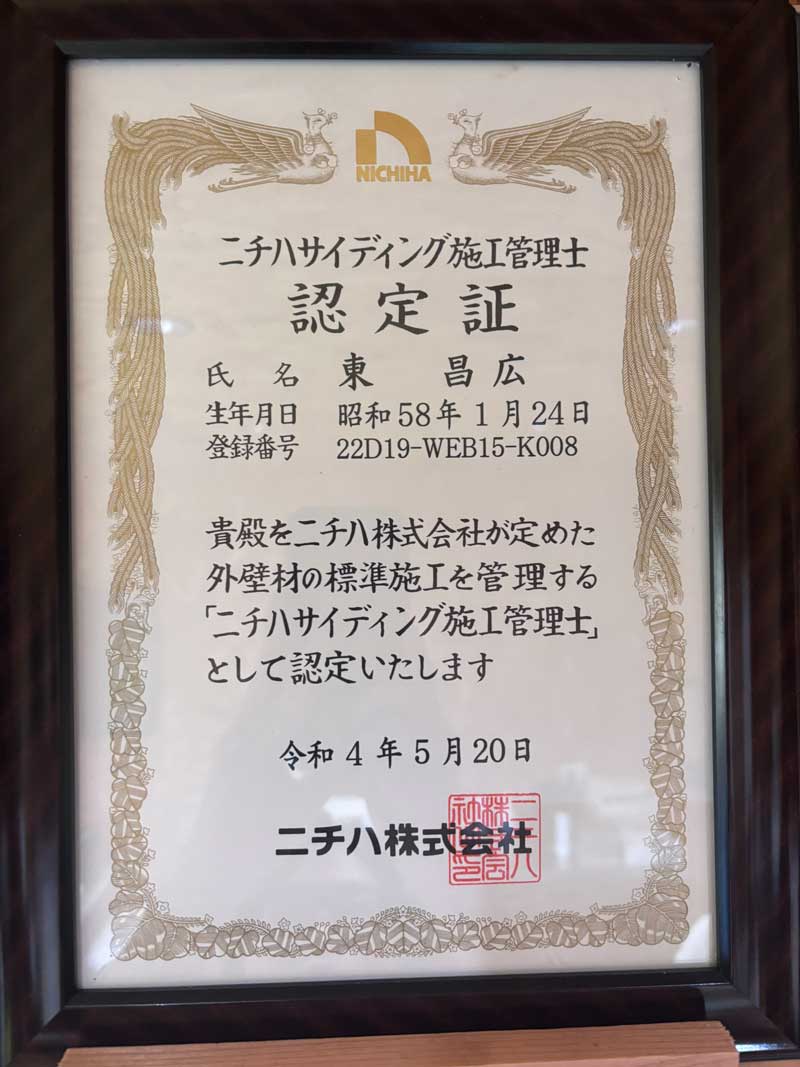 NICHIHA
ニチハサイディング施工管理士
認定証
氏名 東 昌広
生年月日 昭和58年1月24日
登録番号 22D19-WEB15-K008
貴殿をニチハ株式会社が定めた
外壁材の標準施工を管理する
「ニチハサイディング施工管理士」
として認定いたします
令和4年5月20日
ニチハ株式会社
ニチハ株式会社印